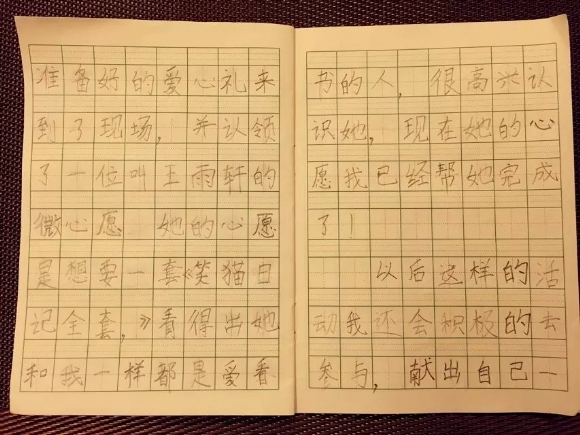 准备好的爱心礼来
到了现场，并认领
了一位叫王雨轩的
微心愿 她的心愿
是想要一套《笑猫日
记全套，》看得出她
和我一样都是爱看
书的人，很高兴认
识她，现在她的心
愿我已经帮她完成
了！
以后这样的活
动我还会积极的去
参与，献出自己一